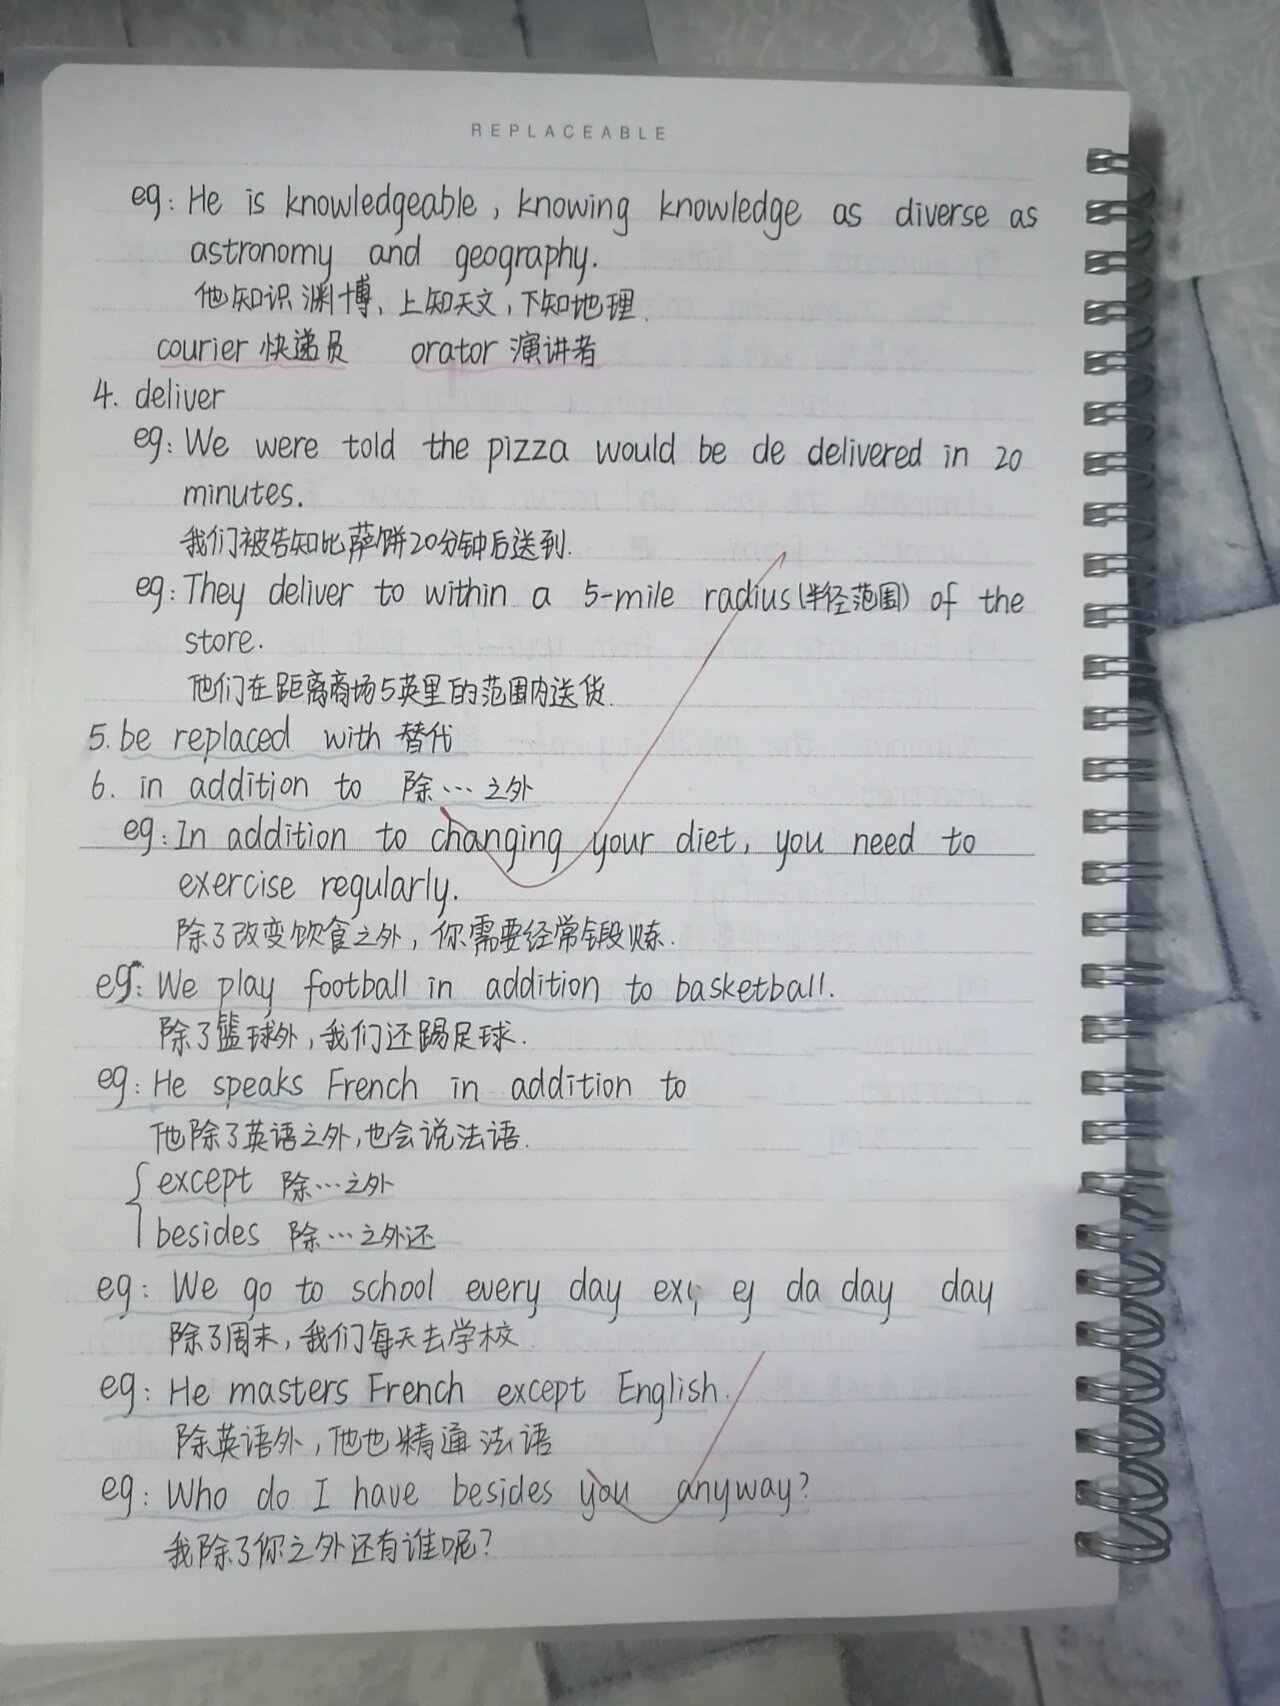 REPLACEABLE
eg: He is knowledgeable, knowing knowledge as diverse as
astronomy and geography.
他知识渊博，上知天文，下知地理.
courier 快递员 orator 演讲者
4. deliver
eg: We were told the pizza would be de delivered in 20
minutes.
我们被告知比萨饼20分钟后送到.
eg: They deliver to within a 5-mile radius(半径范围) of the
store.
他们在距离商场5英里的范围内送货.
5. be replaced with 替代
6. in addition to 除…之外
eg: In addition to changing your diet, you need to
exercise regularly.
除了改变饮食之外，你需要经常锻炼.
eg: We play football in addition to basketball.
除了篮球外，我们还踢足球.
eg: He speaks French in addition to
他除了英语之外，也会说法语.
except 除…之外
besides 除…之外还
eg: We go to school every day da day day
除了周末，我们每天去学校
eg: He masters French except English.
除英语外，他也精通法语
eg: Who do I have besides you anyway?
我除了你之外还有谁呢？